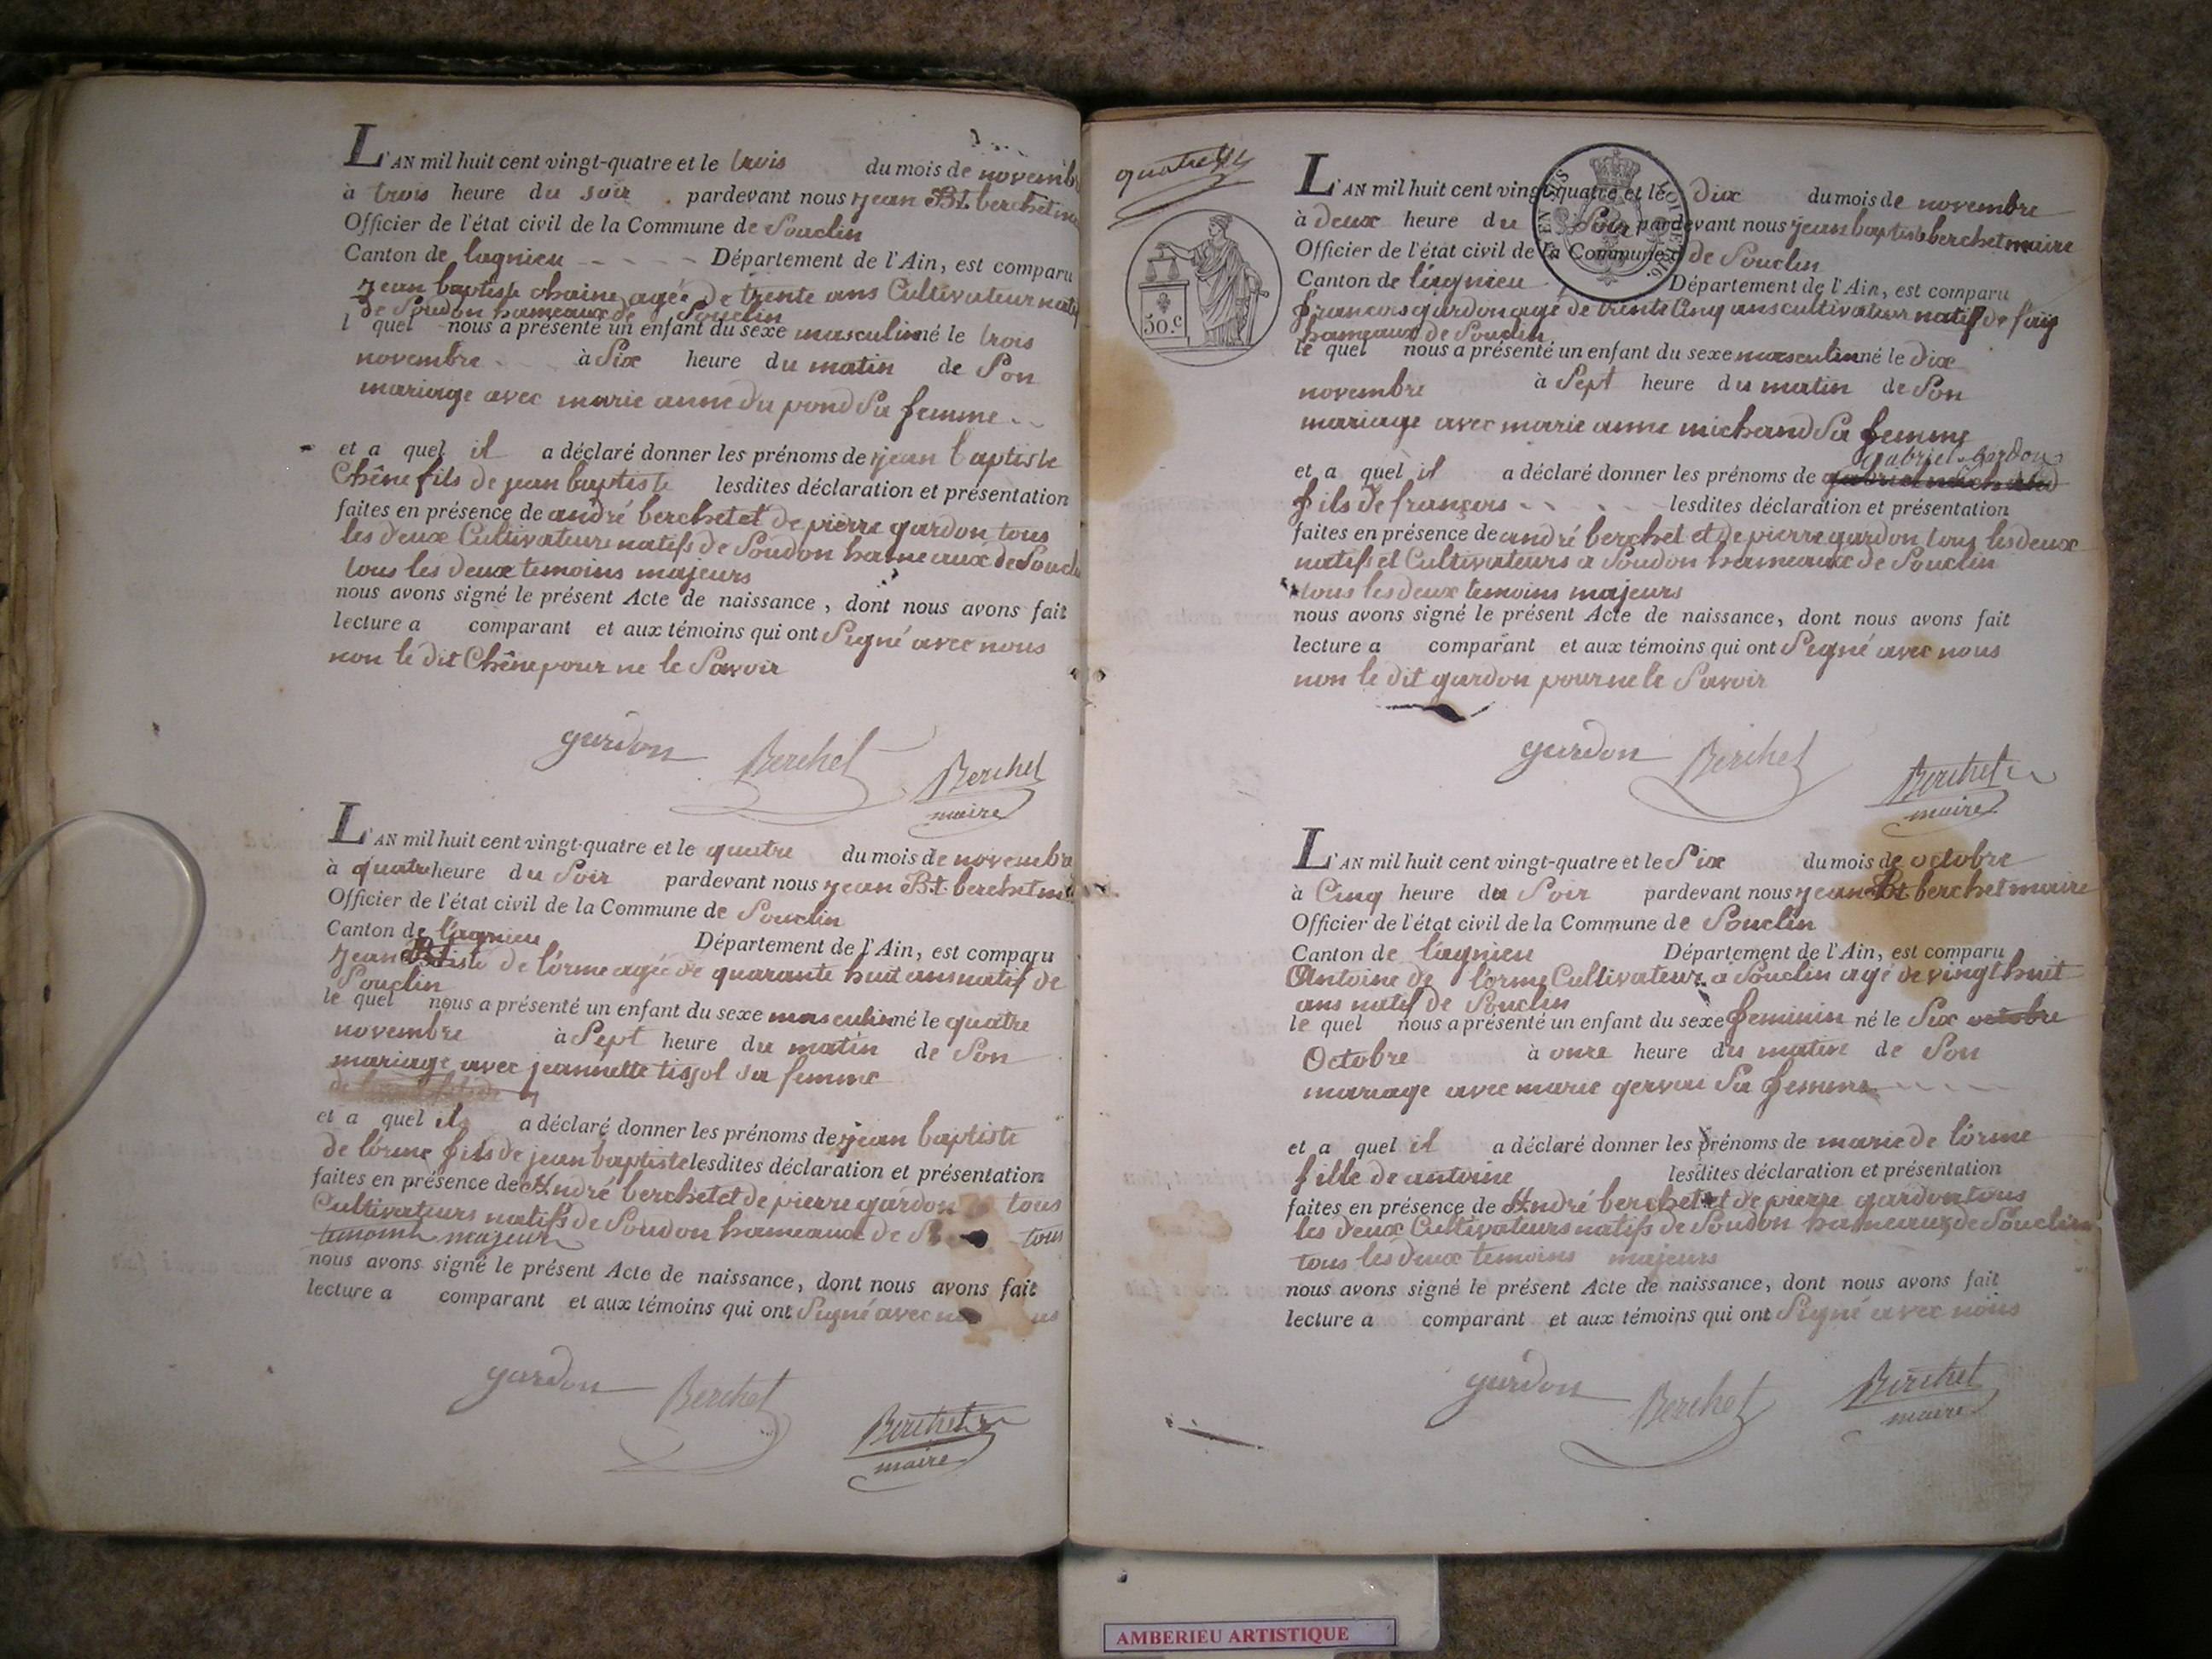 L'AN mil huit cent vingt-quatre et le trois du mois de novembre
à trois heure du soir pardevant nous jean Bt. berchet
Officier de l'état civil de la Commune de Souclin
Canton de lagnieu - - - - Département de l'Ain, est comparu
jean baptiste chaine agée de trente ans Cultivateur natif
de Soudon hameaux de Souclin
l quel nous a présenté un enfant du sexe masculin né le trois
novembre à Six heure du matin de Son
mariage avec marie anne du pond Sa femme
et a quel il a déclaré donner les prénoms de jean baptiste
Chêne fils de jean baptiste lesdites déclaration et présentation
faites en présence de andré berchet et de pierre gardon tous
les deux Cultivateurs natifs de Soudon hameaux de Soucl
tous les deux temoins majeurs
nous avons signé le présent Acte de naissance, dont nous avons fait
lecture a comparant et aux témoins qui ont Signé avec nous
non le dit Chêne pour ne le Savoir
gardon Berchet Berchet
maire
L'AN mil huit cent vingt-quatre et le quatre du mois de novembre
à quatre heure du Soir pardevant nous jean Bt. berchet
Officier de l'état civil de la Commune de Souclin
Canton de lagnieu Département de l'Ain, est comparu
jean de lórme agée de quarante huit ans natif de
Souclin
le quel nous a présenté un enfant du sexe masculin né le quatre
novembre à Sept heure du matin de Son
mariage avec jeannette tissot sa femme
et a quel il a déclaré donner les prénoms de jean baptiste
de lórme fils de jean baptiste lesdites déclaration et présentation
faites en présence de André berchet et de pierre gardon tous
Cultivateurs natifs de Soudon hameaux de tous
temoins majeurs
nous avons signé le présent Acte de naissance, dont nous avons fait
lecture a comparant et aux témoins qui ont Signé avec
gardon Berchet Berchet
maire
50. C
L'AN mil huit cent vingt-quatre et le Dix du mois de novembre
à deux heure du Soir pardevant nous jean baptiste berchet maire
Officier de l'état civil de la Commune de Souclin
Canton de lagnieu Département de l'Ain, est comparu
francois gardon agé de trente Cinq ans cultivateur natif de fay
hameaux de Souclin
le quel nous a présenté un enfant du sexe masculin né le dix
novembre à Sept heure du matin de Son
mariage avec marie anne michaud Sa femme
gabriel gardon
et a quel il a déclaré donner les prénoms de
fils de françois lesdites déclaration et présentation
faites en présence de andré berchet et de pierre gardon tous les deux
natifs et Cultivateurs a Soudon hameaux de Souclin
tous les deux temoins majeurs
nous avons signé le présent Acte de naissance, dont nous avons fait
lecture a comparant et aux témoins qui ont Signé avec nous
non le dit gardon pour ne le Savoir
gardon Berchet Berchet
maire
L'AN mil huit cent vingt-quatre et le Six du mois de octobre
à Cinq heure du Soir pardevant nous jean Bt berchet maire
Officier de l'état civil de la Commune de Souclin
Canton de lagnieu Département de l'Ain, est comparu
Antoine de lórme Cultivateur a Souclin agé de vingt huit
ans natif de Souclin
le quel nous a présenté un enfant du sexe feminin né le Six octobre
Octobre à onze heure du matin de Son
mariage avec marie gervai Sa femme
et a quel il a déclaré donner les prénoms de marie de lórme
fille de antoine lesdites déclaration et présentation
faites en présence de André berchet et de pierre gardon tous
les deux Cultivateurs natifs de Soudon hameaux de Souclin
tous les deux temoins majeurs
nous avons signé le présent Acte de naissance, dont nous avons fait
lecture a comparant et aux témoins qui ont Signé avec nous
gardon Berchet Berchet
maire
AMBERIEU ARTISTIQUE